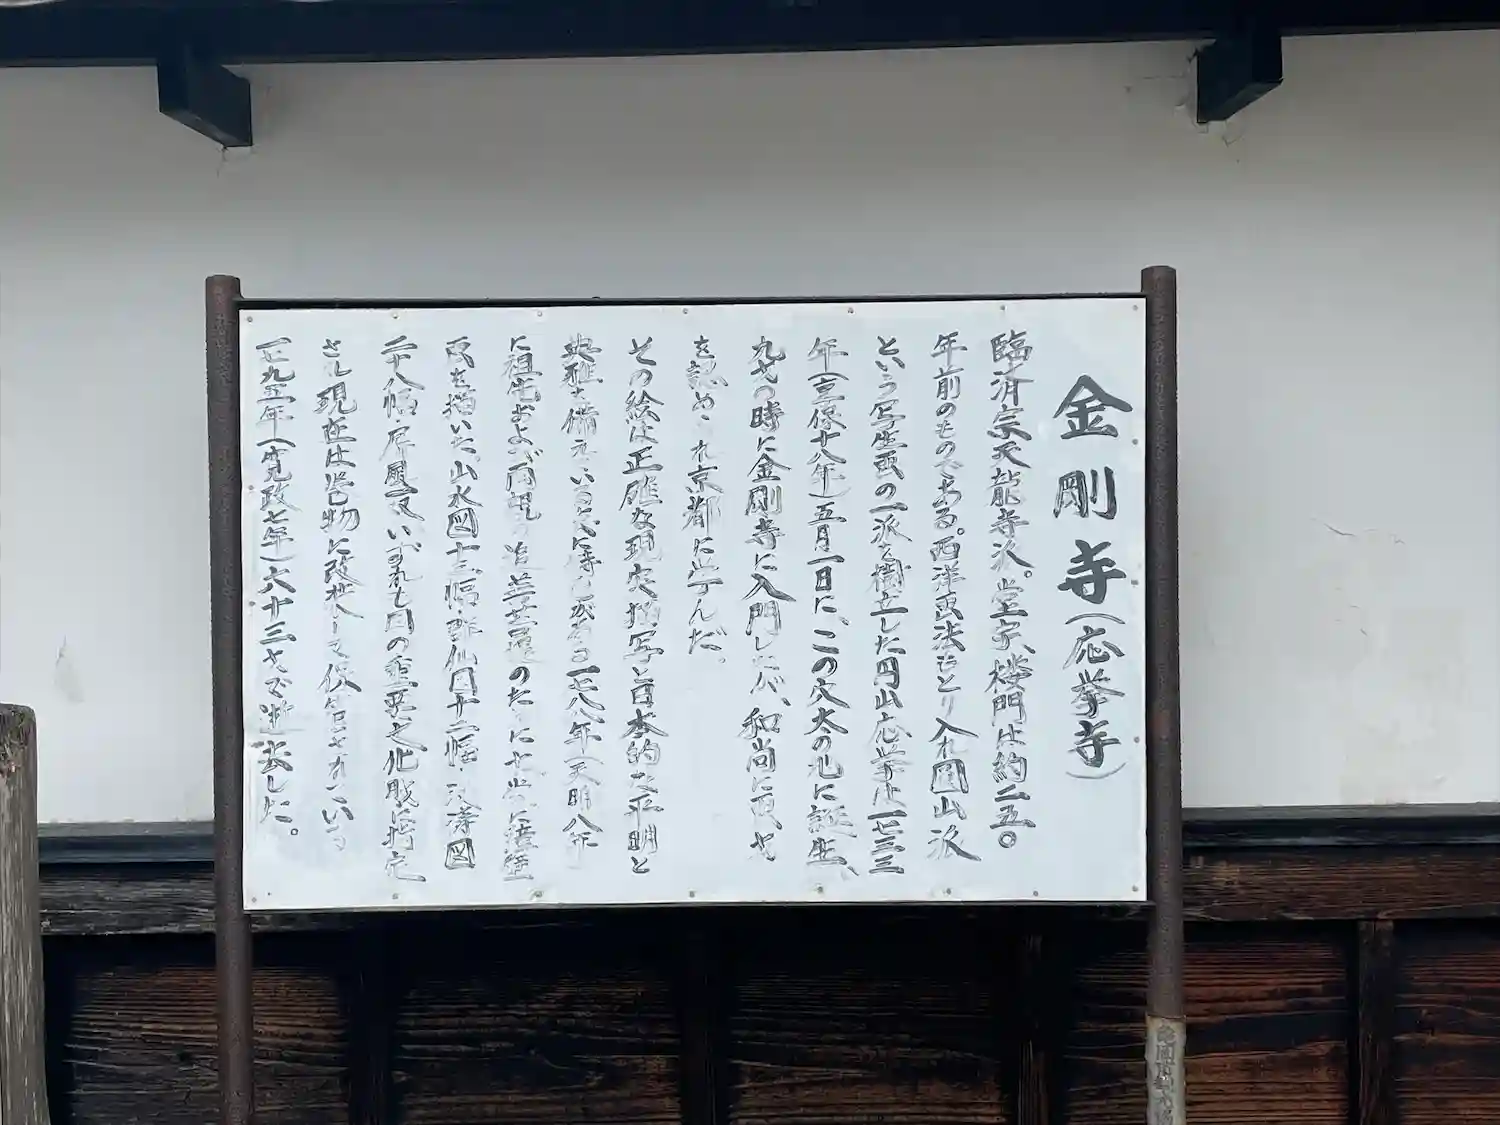 金剛寺(応挙寺)
臨済宗天龍寺派。堂宇、楼門は約二五〇
年前のものである。西洋画法もとり入れ圓山派
という写生画の一派を樹立した円山応挙は一七三三
年(享保十八年)五月一日に、この穴太の地に誕生、
九才の時に金剛寺に入門したが、和尚に画才
を認められ京都に学んだ。
その絵は正確な現実描写と日本的な平明と
典雅を備えている
に祖先および両親の追善菩提のため
画を描いた。山水図十三幅・群仙図十二幅・波濤図
二十八幅・屏風一双いずれも国の重要文化財に指定
され現在は巻物に改装して保管されている
一七九五年(寛政七年)六十三才で逝去した。